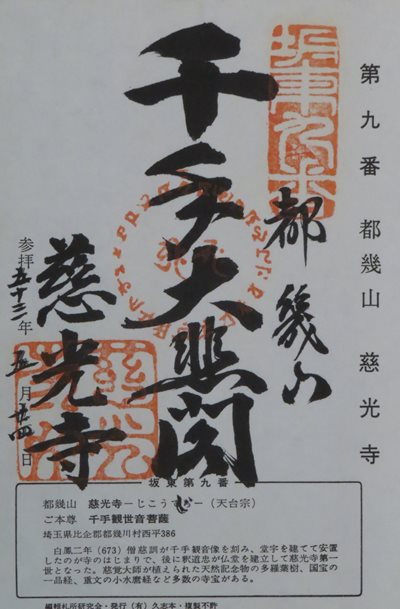 第九番 都幾山 慈光寺
坂東九番
都幾山
千手大悲閣
慈光寺
参拝五十三年五月十四日
坂東第九番
都幾山 慈光寺ーじこうじー(天台宗)
ご本尊 千手観世音菩薩
埼玉県比企郡都幾川村西平386
白鳳二年(673)僧慈訓が千手観音像を刻み、堂宇を建てて安置
したのが寺のはじまりで、後に釈道忠が仏堂を建立して慈光寺第一
世となった。慈覚大師が植えられた天然記念物の多羅葉樹、国宝の
一品経、重文の小水麿経など多数の寺宝がある。
編輯札所研究会・発行(有)久志本・複製不許